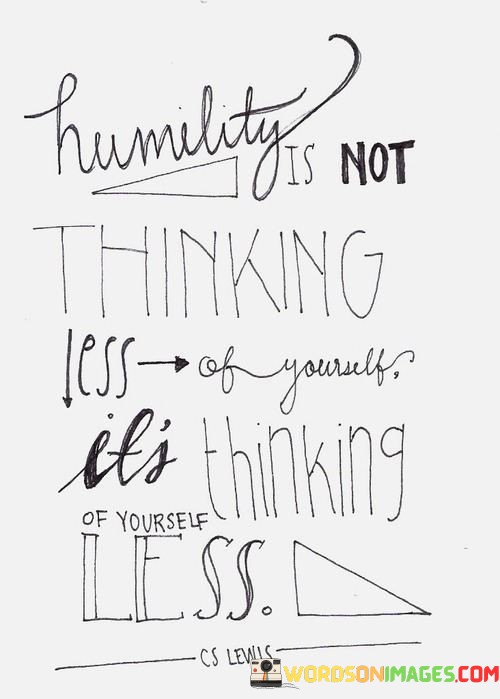 humility IS NOT
THINKING
less → of yourself,
it's thinking
OF YOURSELF
LESS.
CS LEWIS
WORDSONIMAGES.COM